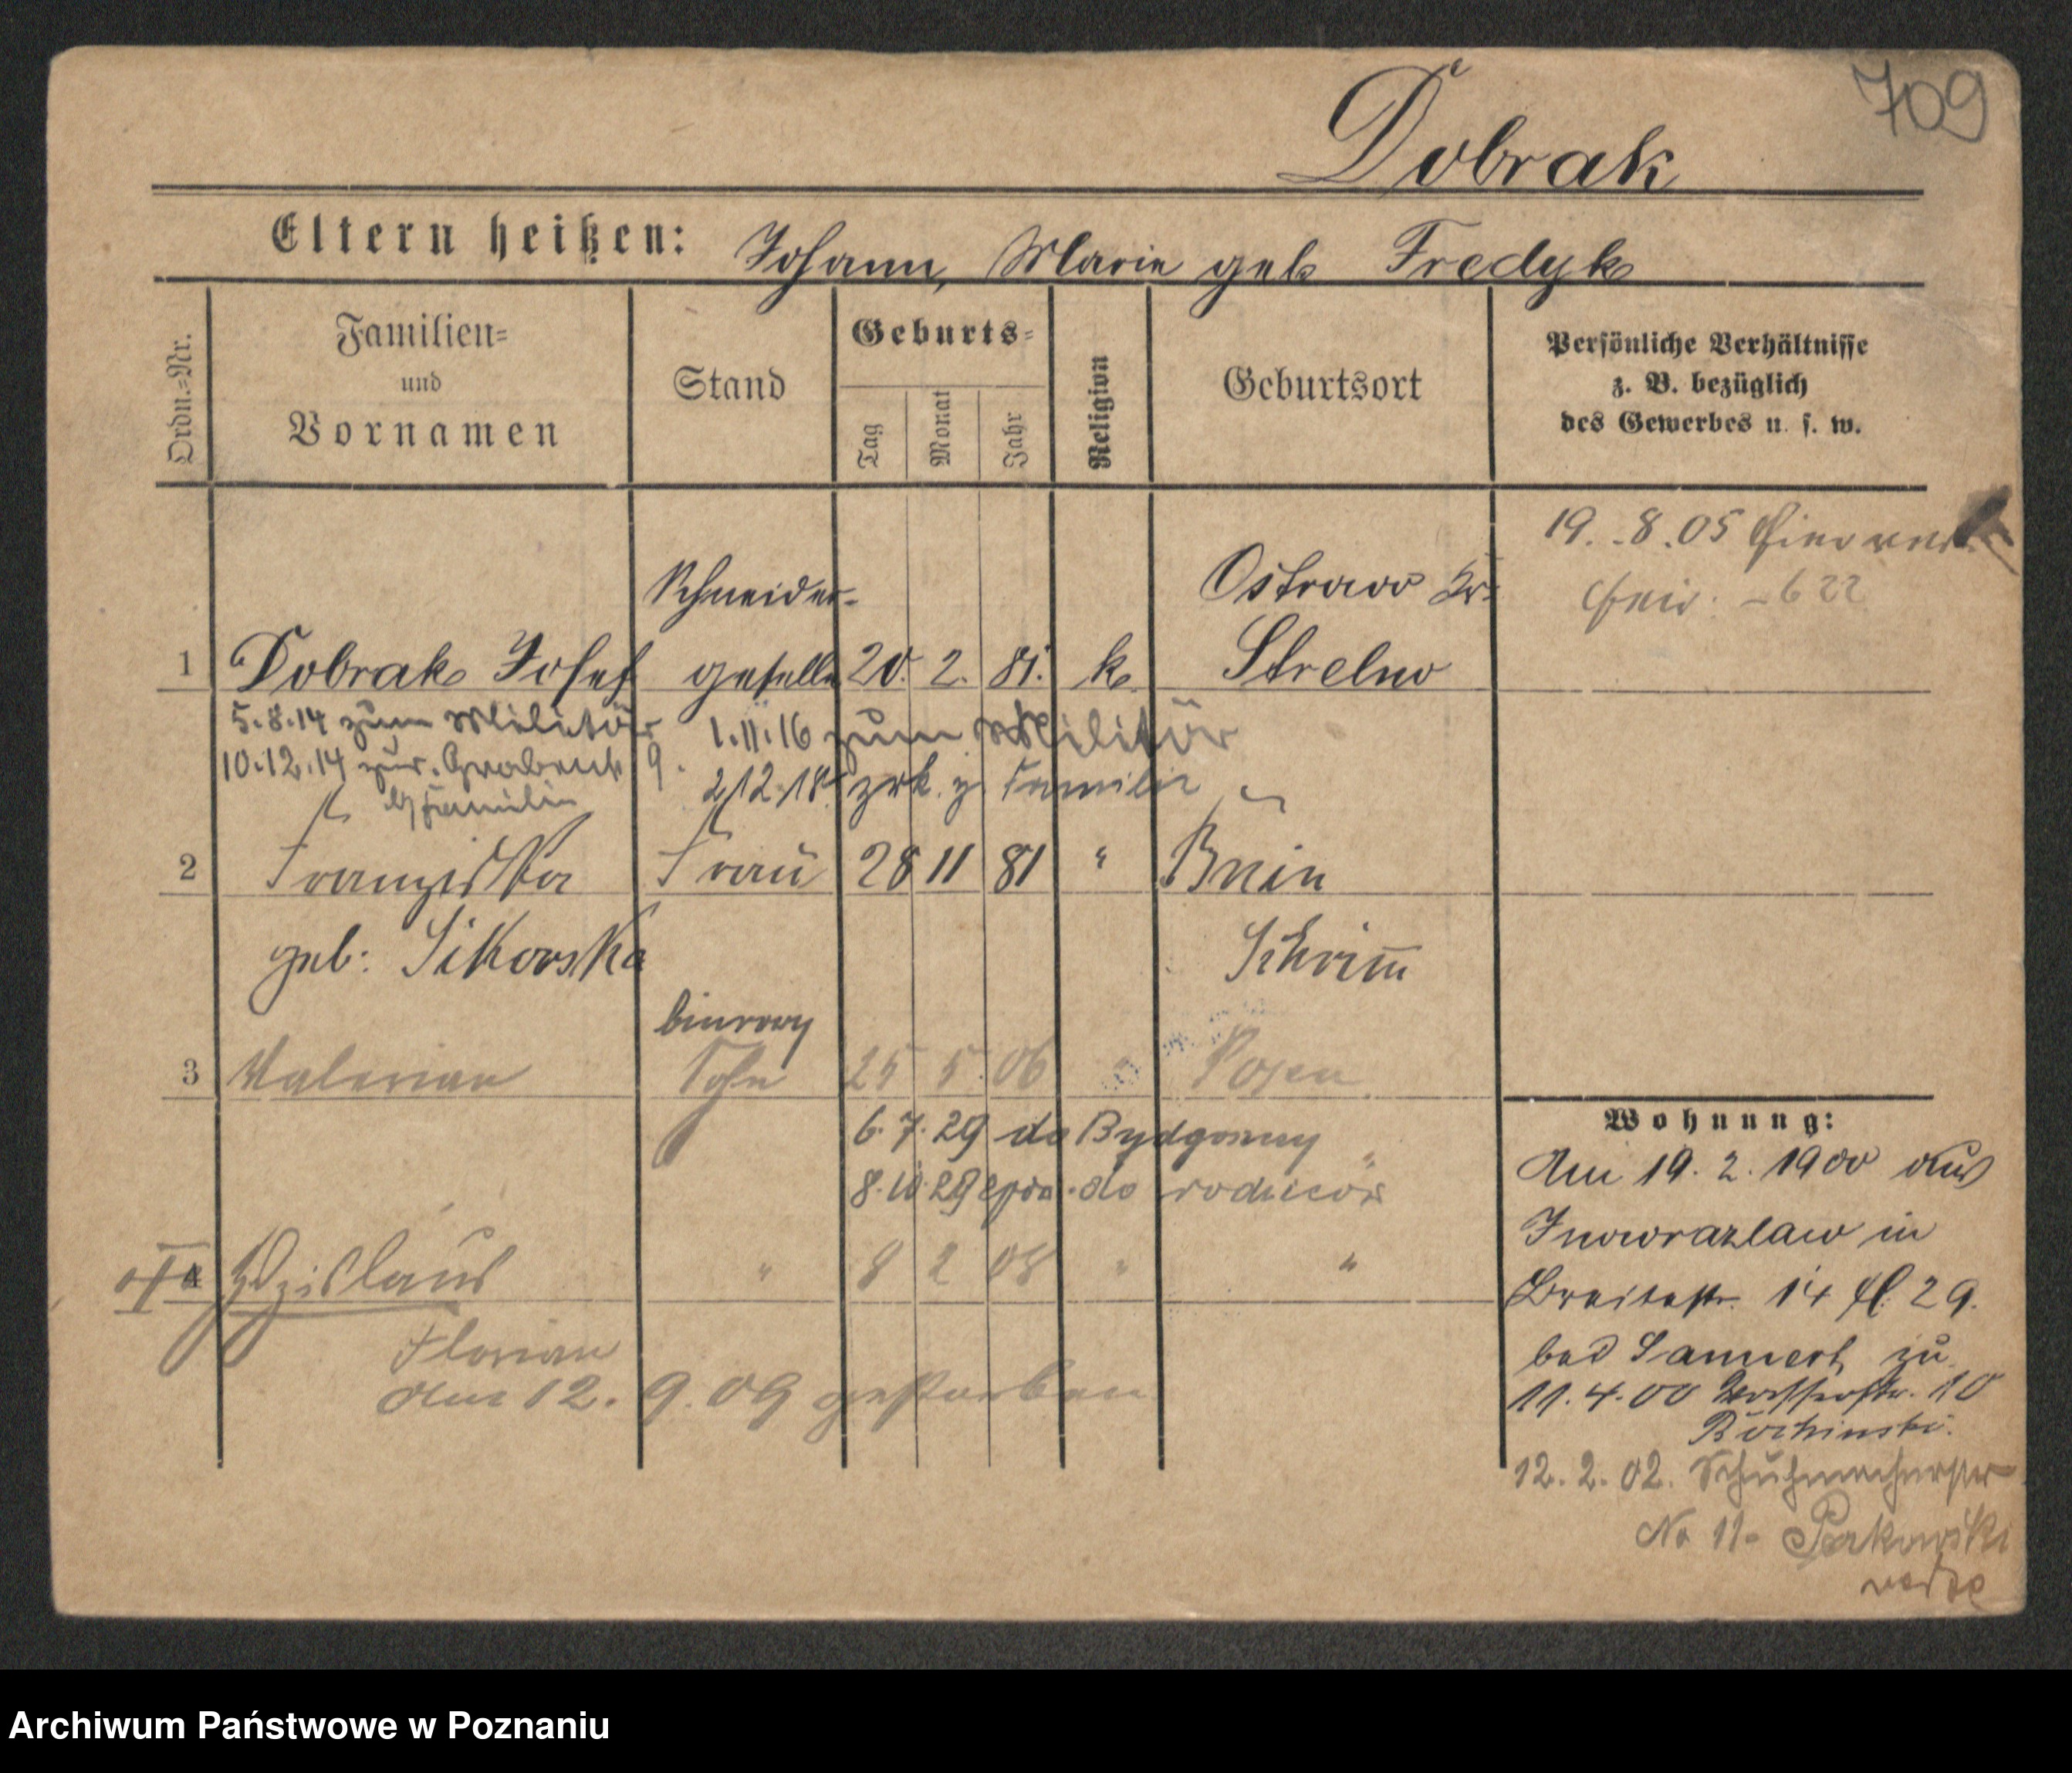 709
Dobrak
Eltern heißen: Johann, Marie geb Fredyk
Ordn.=Nr.
Familien= und Vornamen
Stand
Geburts=
Tag
Monat
Jahr
Religion
Geburtsort
Persönliche Verhältnisse
z. B. bezüglich
des Gewerbes u. s. w.
19.8.05
622
Schneider-
Ostrowo Kr.
1 Dobrak Josef geselle 20. 2. 81. k. Strelno
5.8.14 zum Militär 1.11.16 zum Militär
10.12.14 zur. Grabenstr 9. 2/12.18 zrk. z. Familie
z Familie
2 Franziska Frau 28 11 81 " Bnin
geb: Sikorska Schrimm
biurowy
3 Valerian Sohn 25 5 06 " Posen
6.7.29 do Bydgoszczy
8.10.29 do rodziców
4 Zdzislaus " 8 2 08 " "
Florian
am 12. 9. 09 gestorben
Wohnung:
Am 19. 2. 1900 aus
Inowrazlaw in
Breitestr. 14 29.
bei Sannert zu
11.4.00 10
12. 2. 02. Schuhmacherstr
No 11
Archiwum Państwowe w Poznaniu